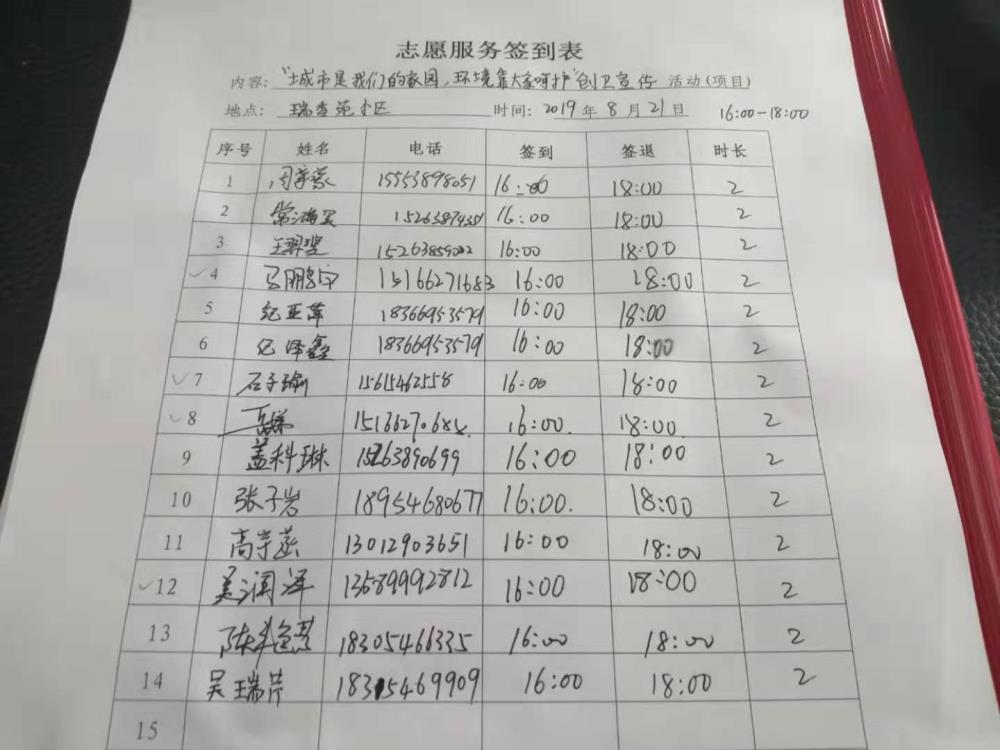 志愿服务签到表
内容:“城市是我们的家园,环境靠大家呵护”创卫宣传 活动(项目)
地点: 瑞香苑小区 时间: 2019年8月21日 16:00-18:00
序号 姓名 电话 签到 签退 时长
1 15553898051 16:00 18:00 2
2 16:00 18:00 2
3 16:00 18:00 2
4 15166271683 16:00 18:00 2
5 纪亚萍 18366953579 16:00 18:00 2
6 纪泽鑫 18366953579 16:00 18:00 2
7 石子瑜 15615462558 16:00 18:00 2
8 16:00. 18:00. 2
9 盖科琳 15263890699 16:00 18:00 2
10 张子岩 18954680677 16:00. 18:00 2
11 13012903651 16:00 18:00 2
12 吴润泽 13589992812 16:00 18:00 2
13 18305466335 16:00 18:00 2
14 吴瑞芹 18315469909 16:00 18:00 2
15